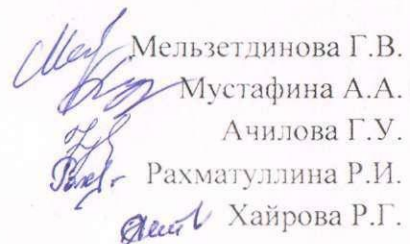 Мельзетдинова Г.В.
Мустафина А.А.
Ачилова Г.У.
Рахматуллина Р.И.
Хайрова Р.Г.